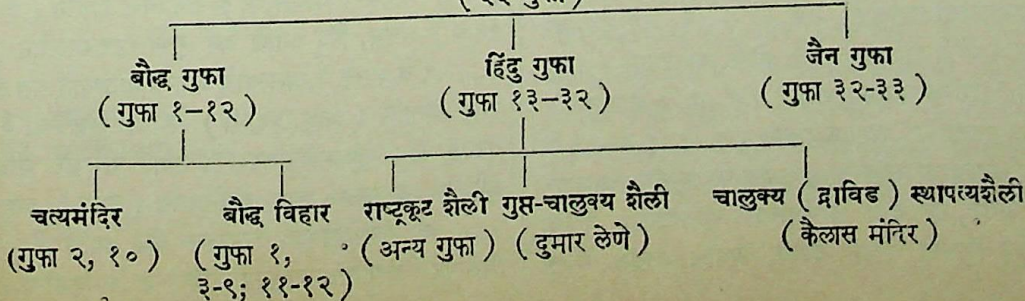 बौद्ध गुफा
(गुफा १–१२)
हिंदु गुफा
(गुफा १३–३२)
जैन गुफा
(गुफा ३२-३३)
चत्यमंदिर
(गुफा २, १०)
बौद्ध विहार
(गुफा १,
३-९; ११-१२)
राष्ट्रकूट शैली
(अन्य गुफा)
गुप्त-चालुक्य शैली
(दुमार लेणे)
चालुक्य (द्राविड) स्थापत्यशैली
(कैलास मंदिर)